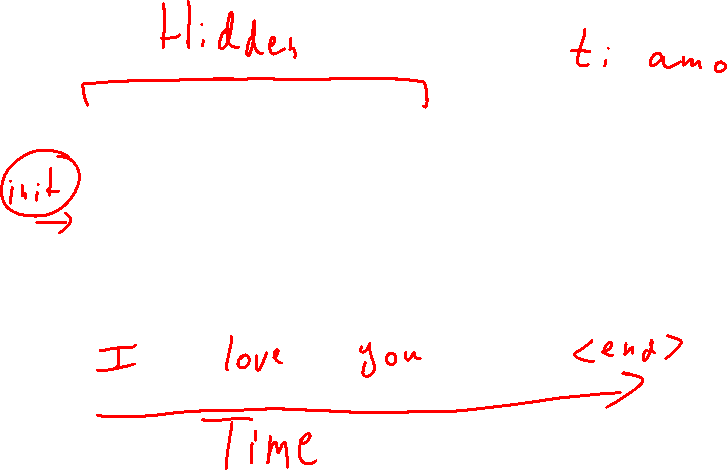 Hidden
ti amo
init
I love you <end>
Time